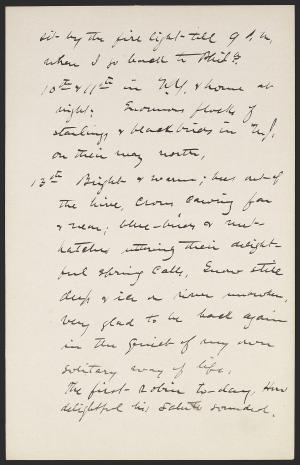 sit by the fire light till 9 P.M.
when I go back to Phila.
10th & 11th in N.Y. & home at
night; Enormous flocks of
starlings & blackbirds in N.J.
on their way north.
13th Bright & warm; bees out of
the hive, Crows cawing far
& near; blue-birds & nut-
hatches uttering their delight-
ful spring calls, Snow still
deep & ice on river unbroken,
very glad to be back again
in the quiet of my own
solitary way of life.
The first Robin to-day, How
delightful his salute sounded.